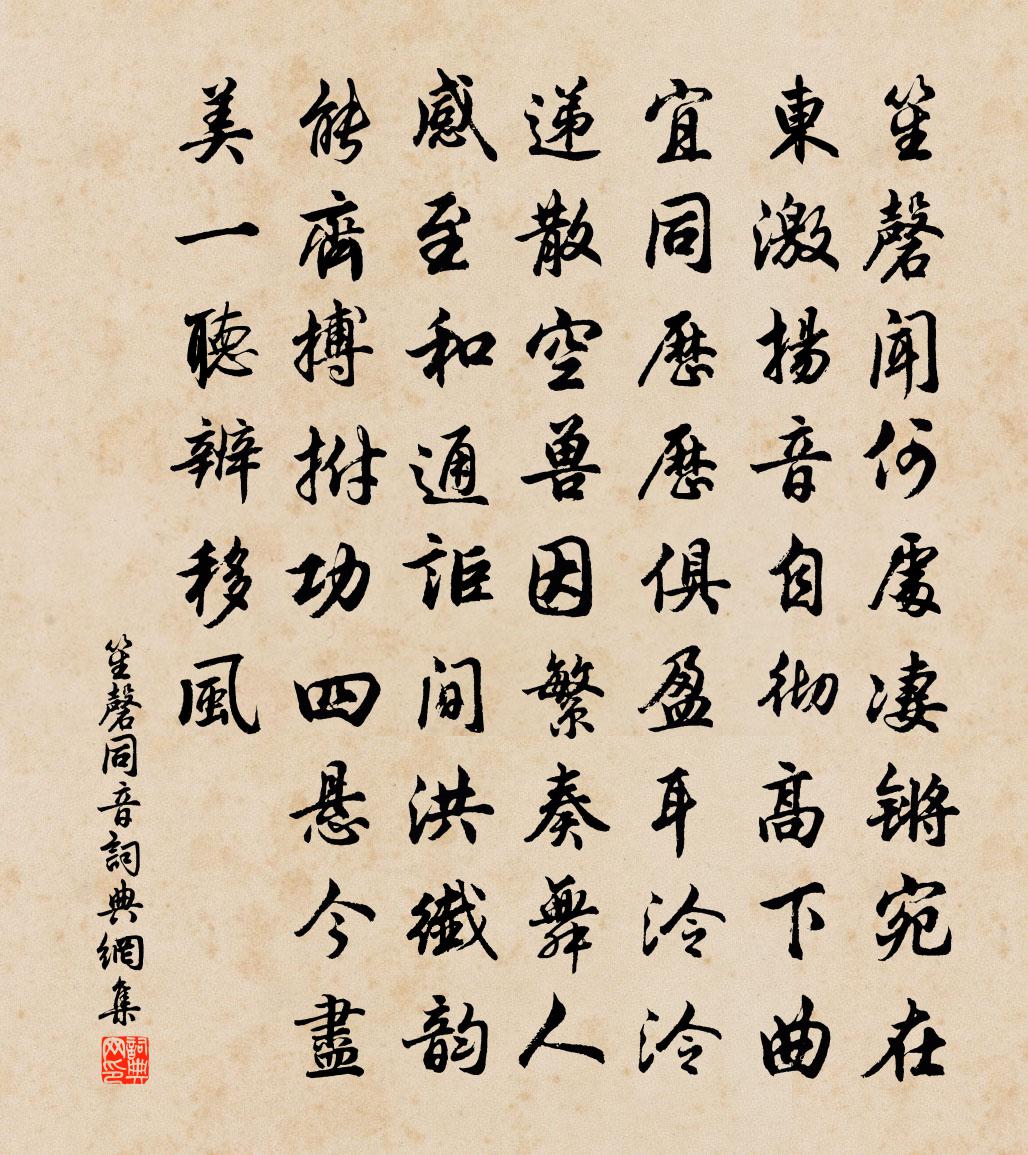 笙磬聞何處凄锵宛在
東激揚音自彻高下曲
宜同歷歷俱盈耳泠泠
递散空兽因繁奏舞人
感至和通詎間洪纖韵
能齊搏拊功四悬今盡
美一聽辨移風
笙磬同音詞典網集
詞典网印